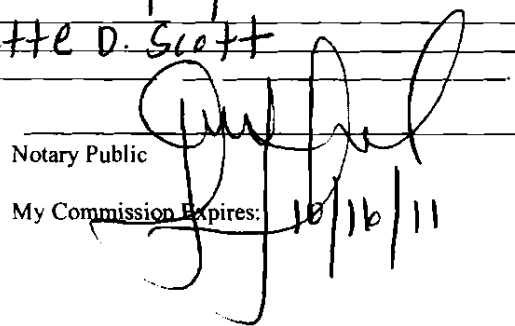 tte D. Scott
Notary Public
My Commission Expires: 10/16/11